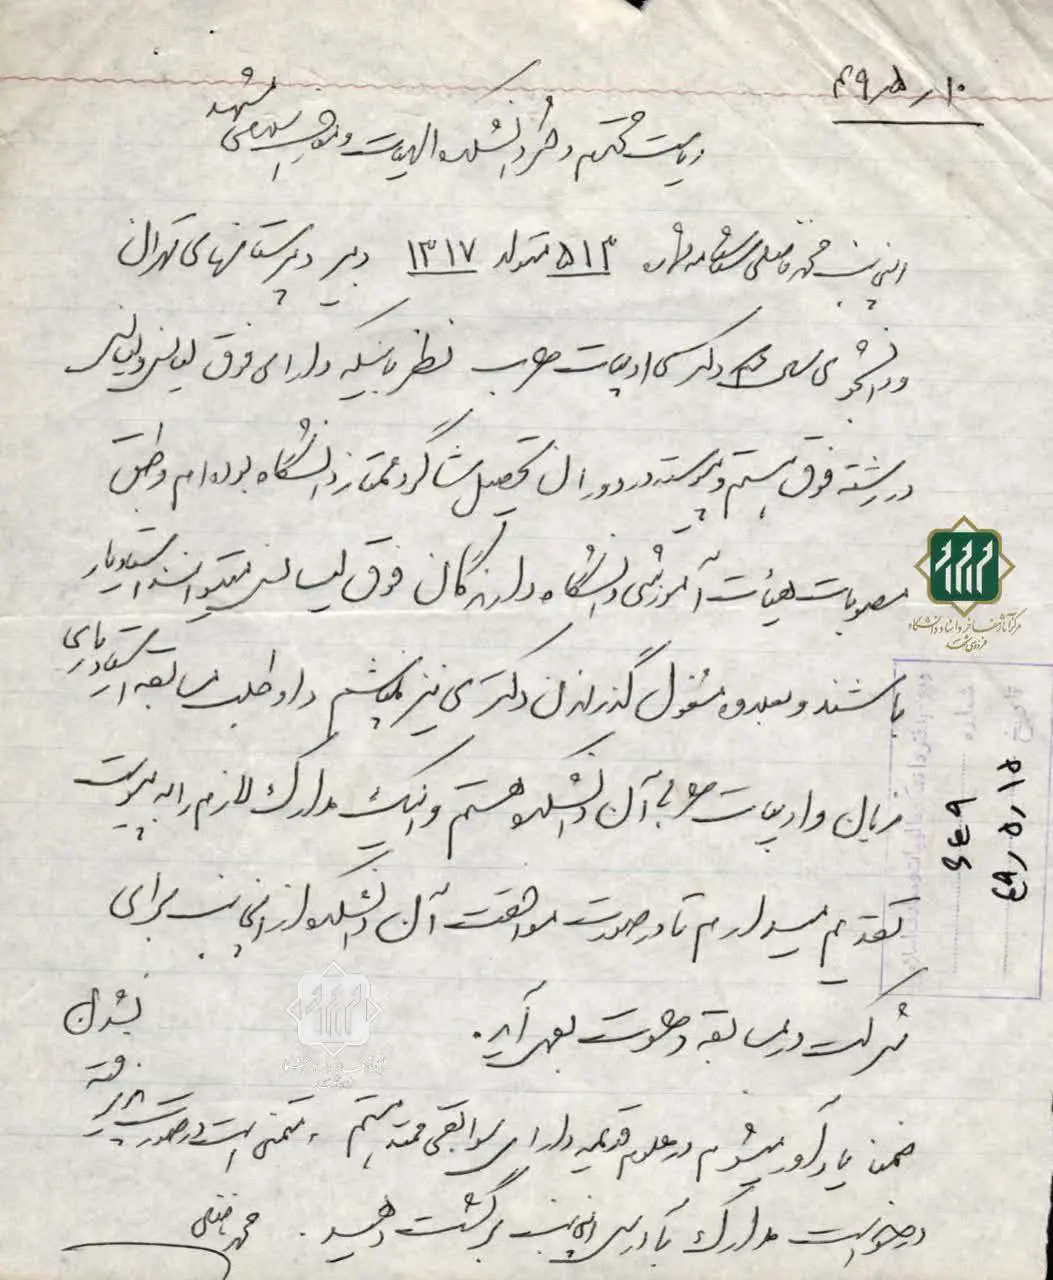 ۴۹ر۵ر۱۰
ریاست محترم دفتر دانشکده الهیات و معارف اسلامی مشهد
اینجانب محمد فاضلی شناسنامه شماره ۵۱۳ متولد ۱۳۱۷ دبیر دبیرستانهای تهران
و دانشجوی سال دکترای ادبیات عرب نظر باینکه دارای فوق لیسانس و لیسانس
در رشته فوق هستم و پیوسته در دوران تحصیل شاگرد ممتاز دانشگاه بوده ام و طبق
مصوبات هیأت آموزشی دانشگاه دارندگان فوق لیسانس میتوانند استادیار
باشند و بعلاوه مشغول گذراندن دکتری نیز میباشم داوطلب مسابقه استادیاری
زبان و ادبیات عربی آن دانشکده هستم و اینک مدارک لازم را به پیوست
تقدیم میدارم تا در صورت موافقت آن دانشکده از اینجانب برای
شرکت در مسابقه دعوت بعمل آید.
ضمنا یادآور میشوم در علوم قدیمه دارای سوابقی ممتد هستم، متمنی است در صورت پذیرفته نشدن
درخواست مدارک بآدرس اینجانب برگشت دهید. محمد فاضلی
مرکز آثار مفاخر و اسناد دانشگاه
فردوسی مشهد
تاریخ ۴۹ر۵ر۱۵
شماره ۶۴۹